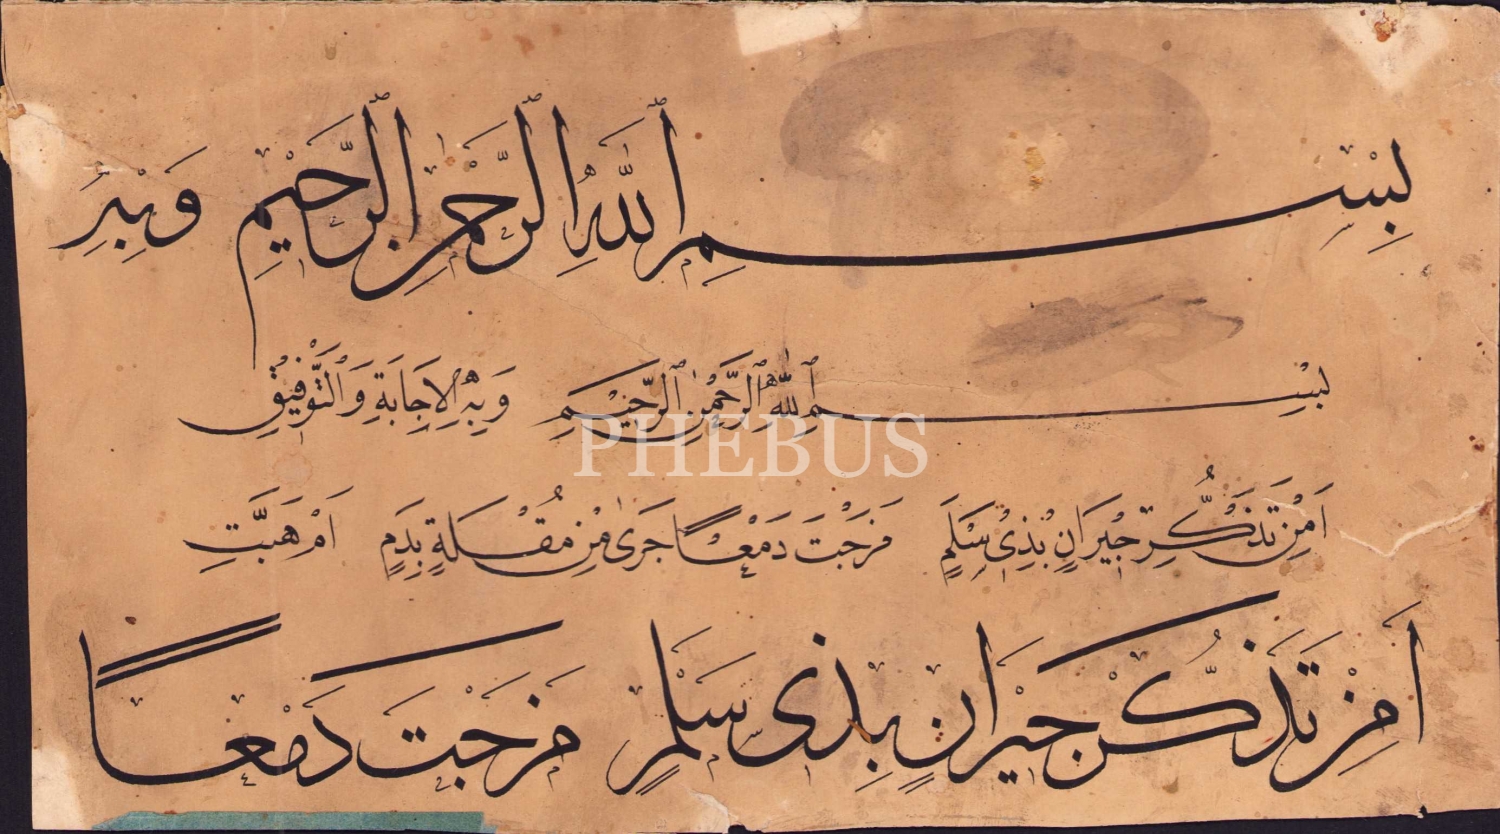 بِسْمِ ٱللّٰهِ ٱلرَّحْمٰنِ ٱلرَّحِيْمِ وَبِهِ
بِسْمِ ٱللّٰهِ ٱلرَّحْمٰنِ ٱلرَّحِيْمِ وَبِهِ الْاِجَابَةِ وَٱلتَّوْفِيْقِ
PHEBUS
اَمِنْ تَذَكُّرِ جِيْرَانٍ بِذِيْ سَلَمٍ مَزَجْتَ دَمْعًا جَرٰى مِنْ مُقْلَةٍ بِدَمٍ اَمْ هَبَّتِ
اَمِنْ تَذَكُّرِ جِيْرَانٍ بِذِى سَلَمٍ مَزَجْتَ دَمْعًا